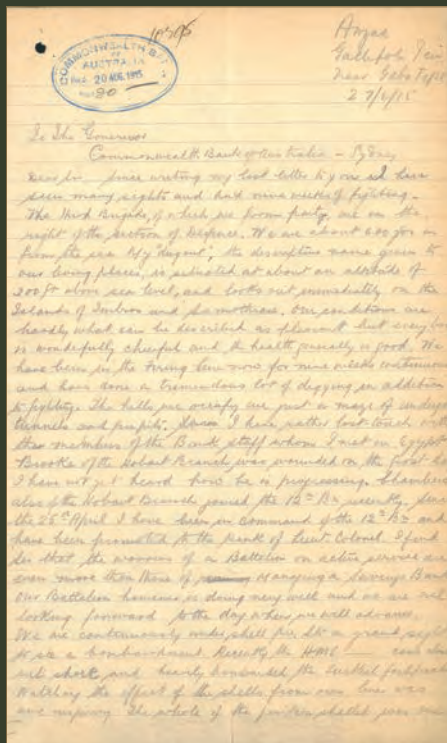 Anzac
Gallipoli
Near Gaba Tepe
27/6/15
COMMONWEALTH BANK
OF
AUSTRALIA
20 AUG. 1915
To The Governor
Commonwealth Bank of Australia – Sydney
Dear Sir Since writing my last letter to you I have
seen many sights and had nine weeks of fighting.
The Third Brigade, of which we form part, are on the
right of the section of Defence. We are about 600 yds
from the sea. My "dugout", the descriptive name given to
our living places, is situated at about an altitude of
200 ft above sea level, and looks out immediately on the
Islands of Imbros and Samothrace. Our conditions are
hardly what can be described as pleasant but every
is wonderfully cheerful and the health generally is good. We
have been in the firing line now for nine weeks continuous
and have done a tremendous lot of digging in addition
to fighting. The hills we occupy are just a maze of
tunnels and I have rather lost touch with
the members of the Bank staff whom I met in Egypt.
Brooks of the Hobart Branch was wounded on the first
I have not yet heard how he is progressing. Chambers
also of the Hobart Branch joined the 12th Bn recently. Since
the 25th April I have been in command of the 12th Bn and
have been promoted to the rank of Lieut Colonel. I find
Sir that the worries of a Battalion on active service are
even more than those of Managing a Savings Bank
Our Battalion however is doing very well and we are all
looking forward to the day when we will advance.
We are continuously under shell fire. It is a grand sight
to see a bombardment. Recently the HMS came
and heavily bombarded the Turkish
Watching the effect of the shells from our lines was
The whole of the shelled